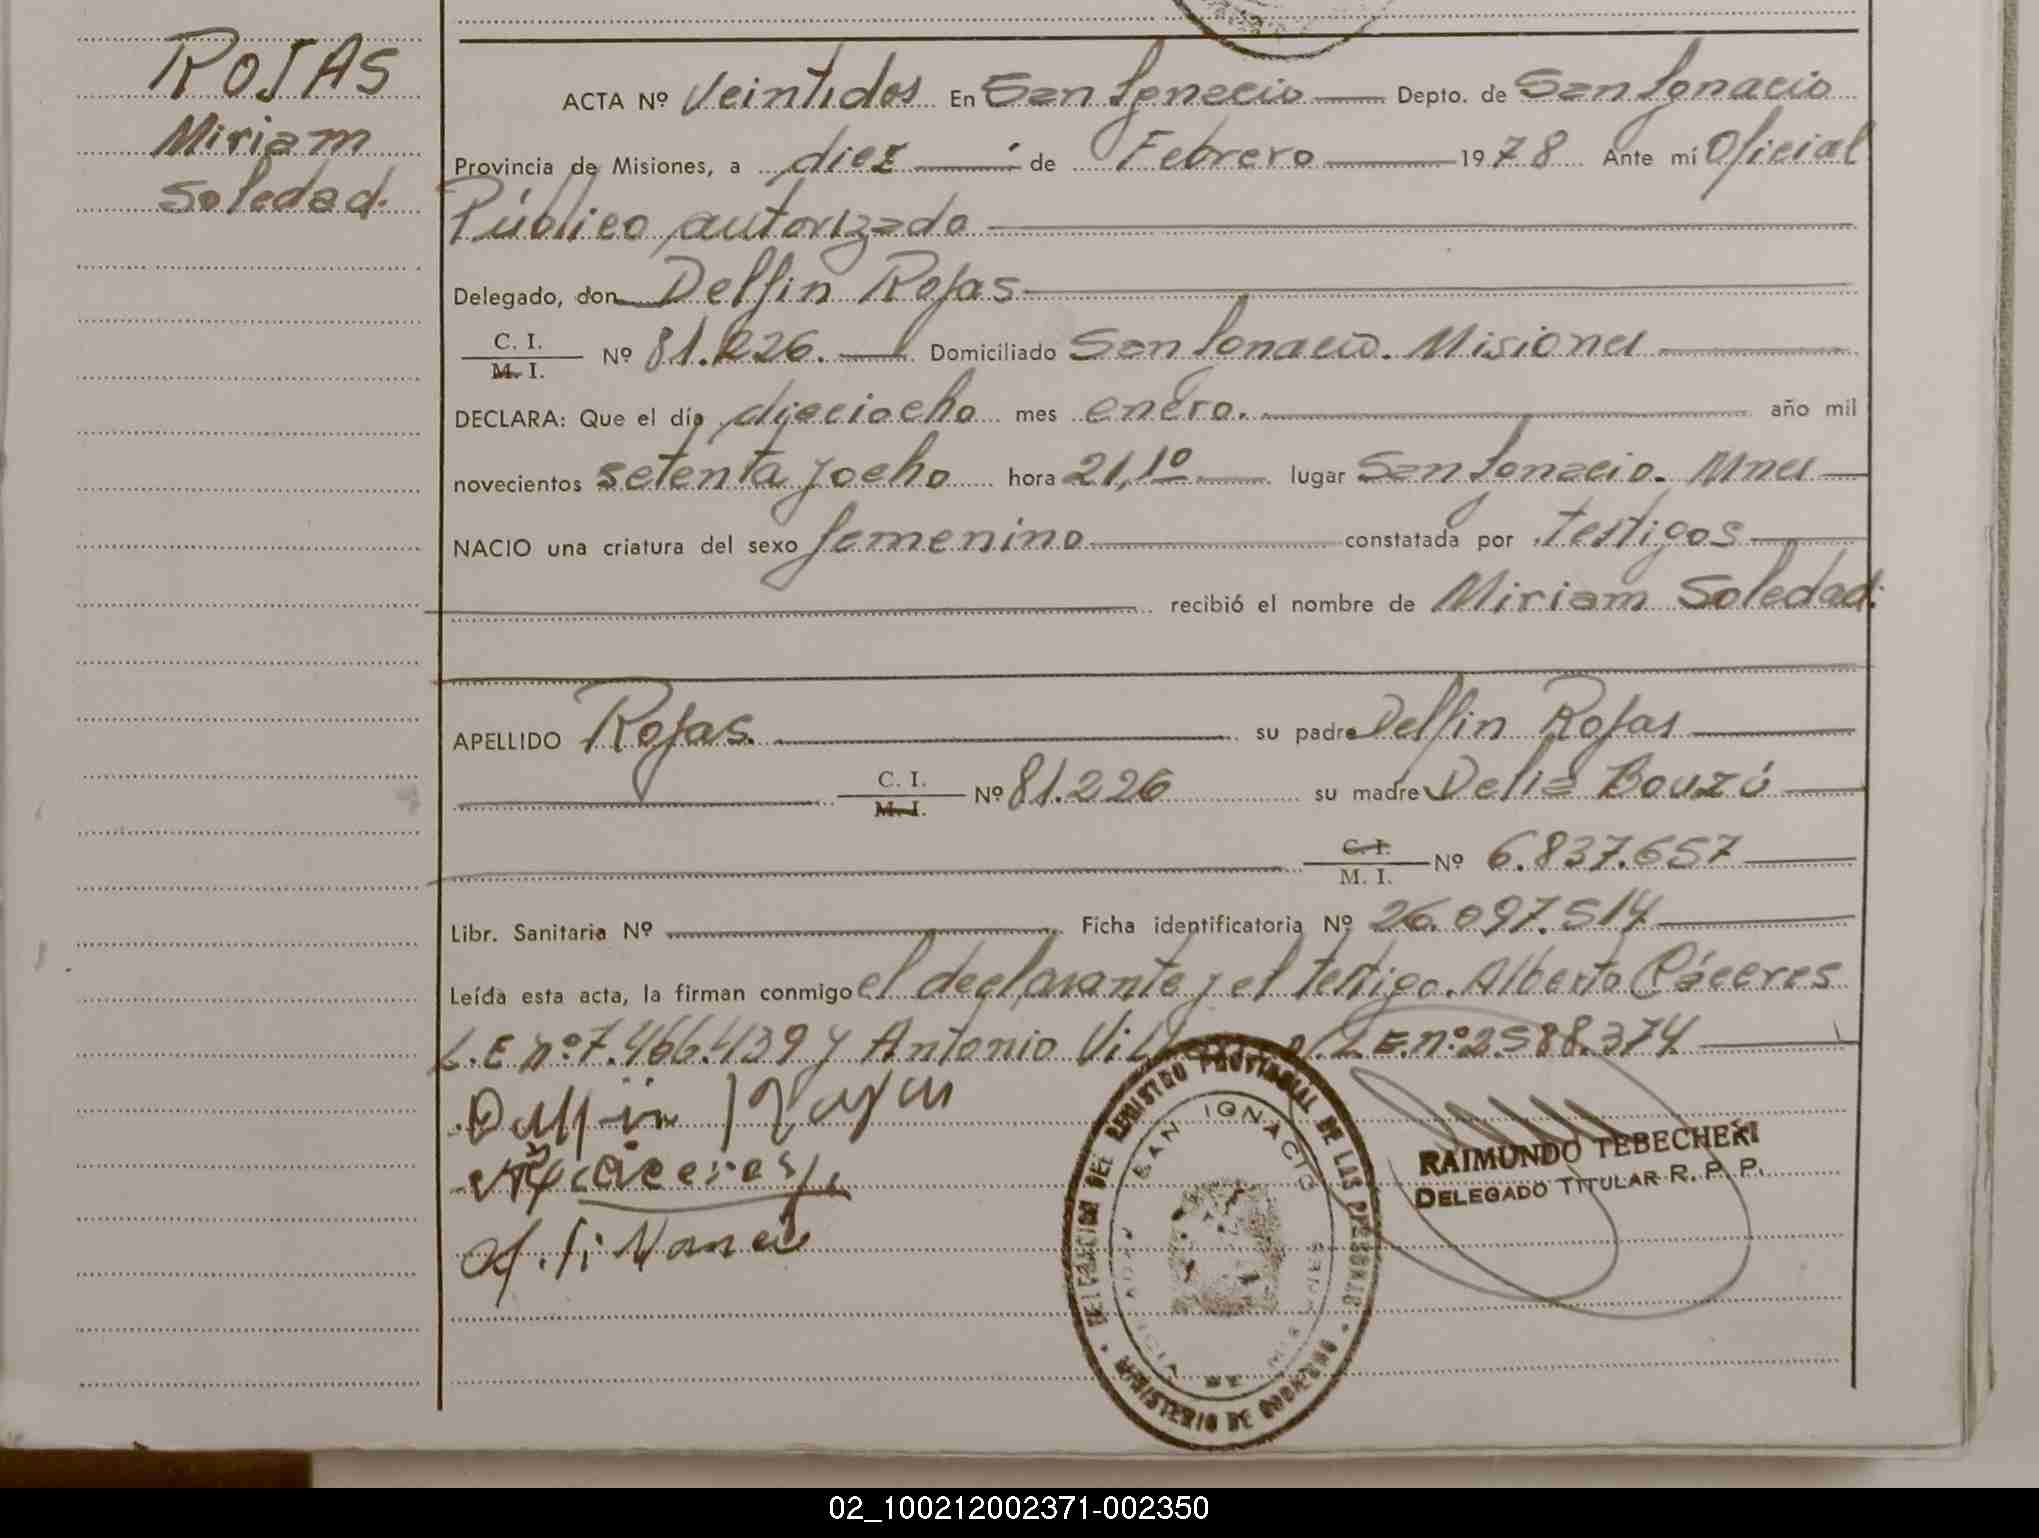 ROJAS
Miriam
Soledad.
ACTA Nº Veintidos En San Ignacio Depto. de San Ignacio
Provincia de Misiones, a diez de Febrero 1978 Ante mí Oficial
Público autorizado
Delegado, don Delfin Rojas
C. I.
M. I. Nº 81.226. Domiciliado San Ignacio. Misiones
DECLARA: Que el día dieciocho mes enero. año mil
novecientos setenta y ocho hora 21,10 lugar San Ignacio. Mnes
NACIO una criatura del sexo femenino constatada por testigos
recibió el nombre de Miriam Soledad.
APELLIDO Rojas. su padre Delfin Rojas
C. I.
M. I. Nº 81.226 su madre Delia Bouzó
C. I.
M. I. Nº 6.837.657
Libr. Sanitaria Nº Ficha identificatoria Nº 26.097.514
Leída esta acta, la firman conmigo el declarante y el testigo. Alberto Cáceres
L.E nº 7.466.439 y Antonio L.E.nº 2.588.374
Delfin Rojas
Caceres
DELEGACION DEL REGISTRO PROVINCIAL DE LAS PERSONAS
SAN IGNACIO
MINISTERIO DE GOBIERNO
RAIMUNDO TEBECHERI
DELEGADO TITULAR R. P. P.
02_100212002371-002350